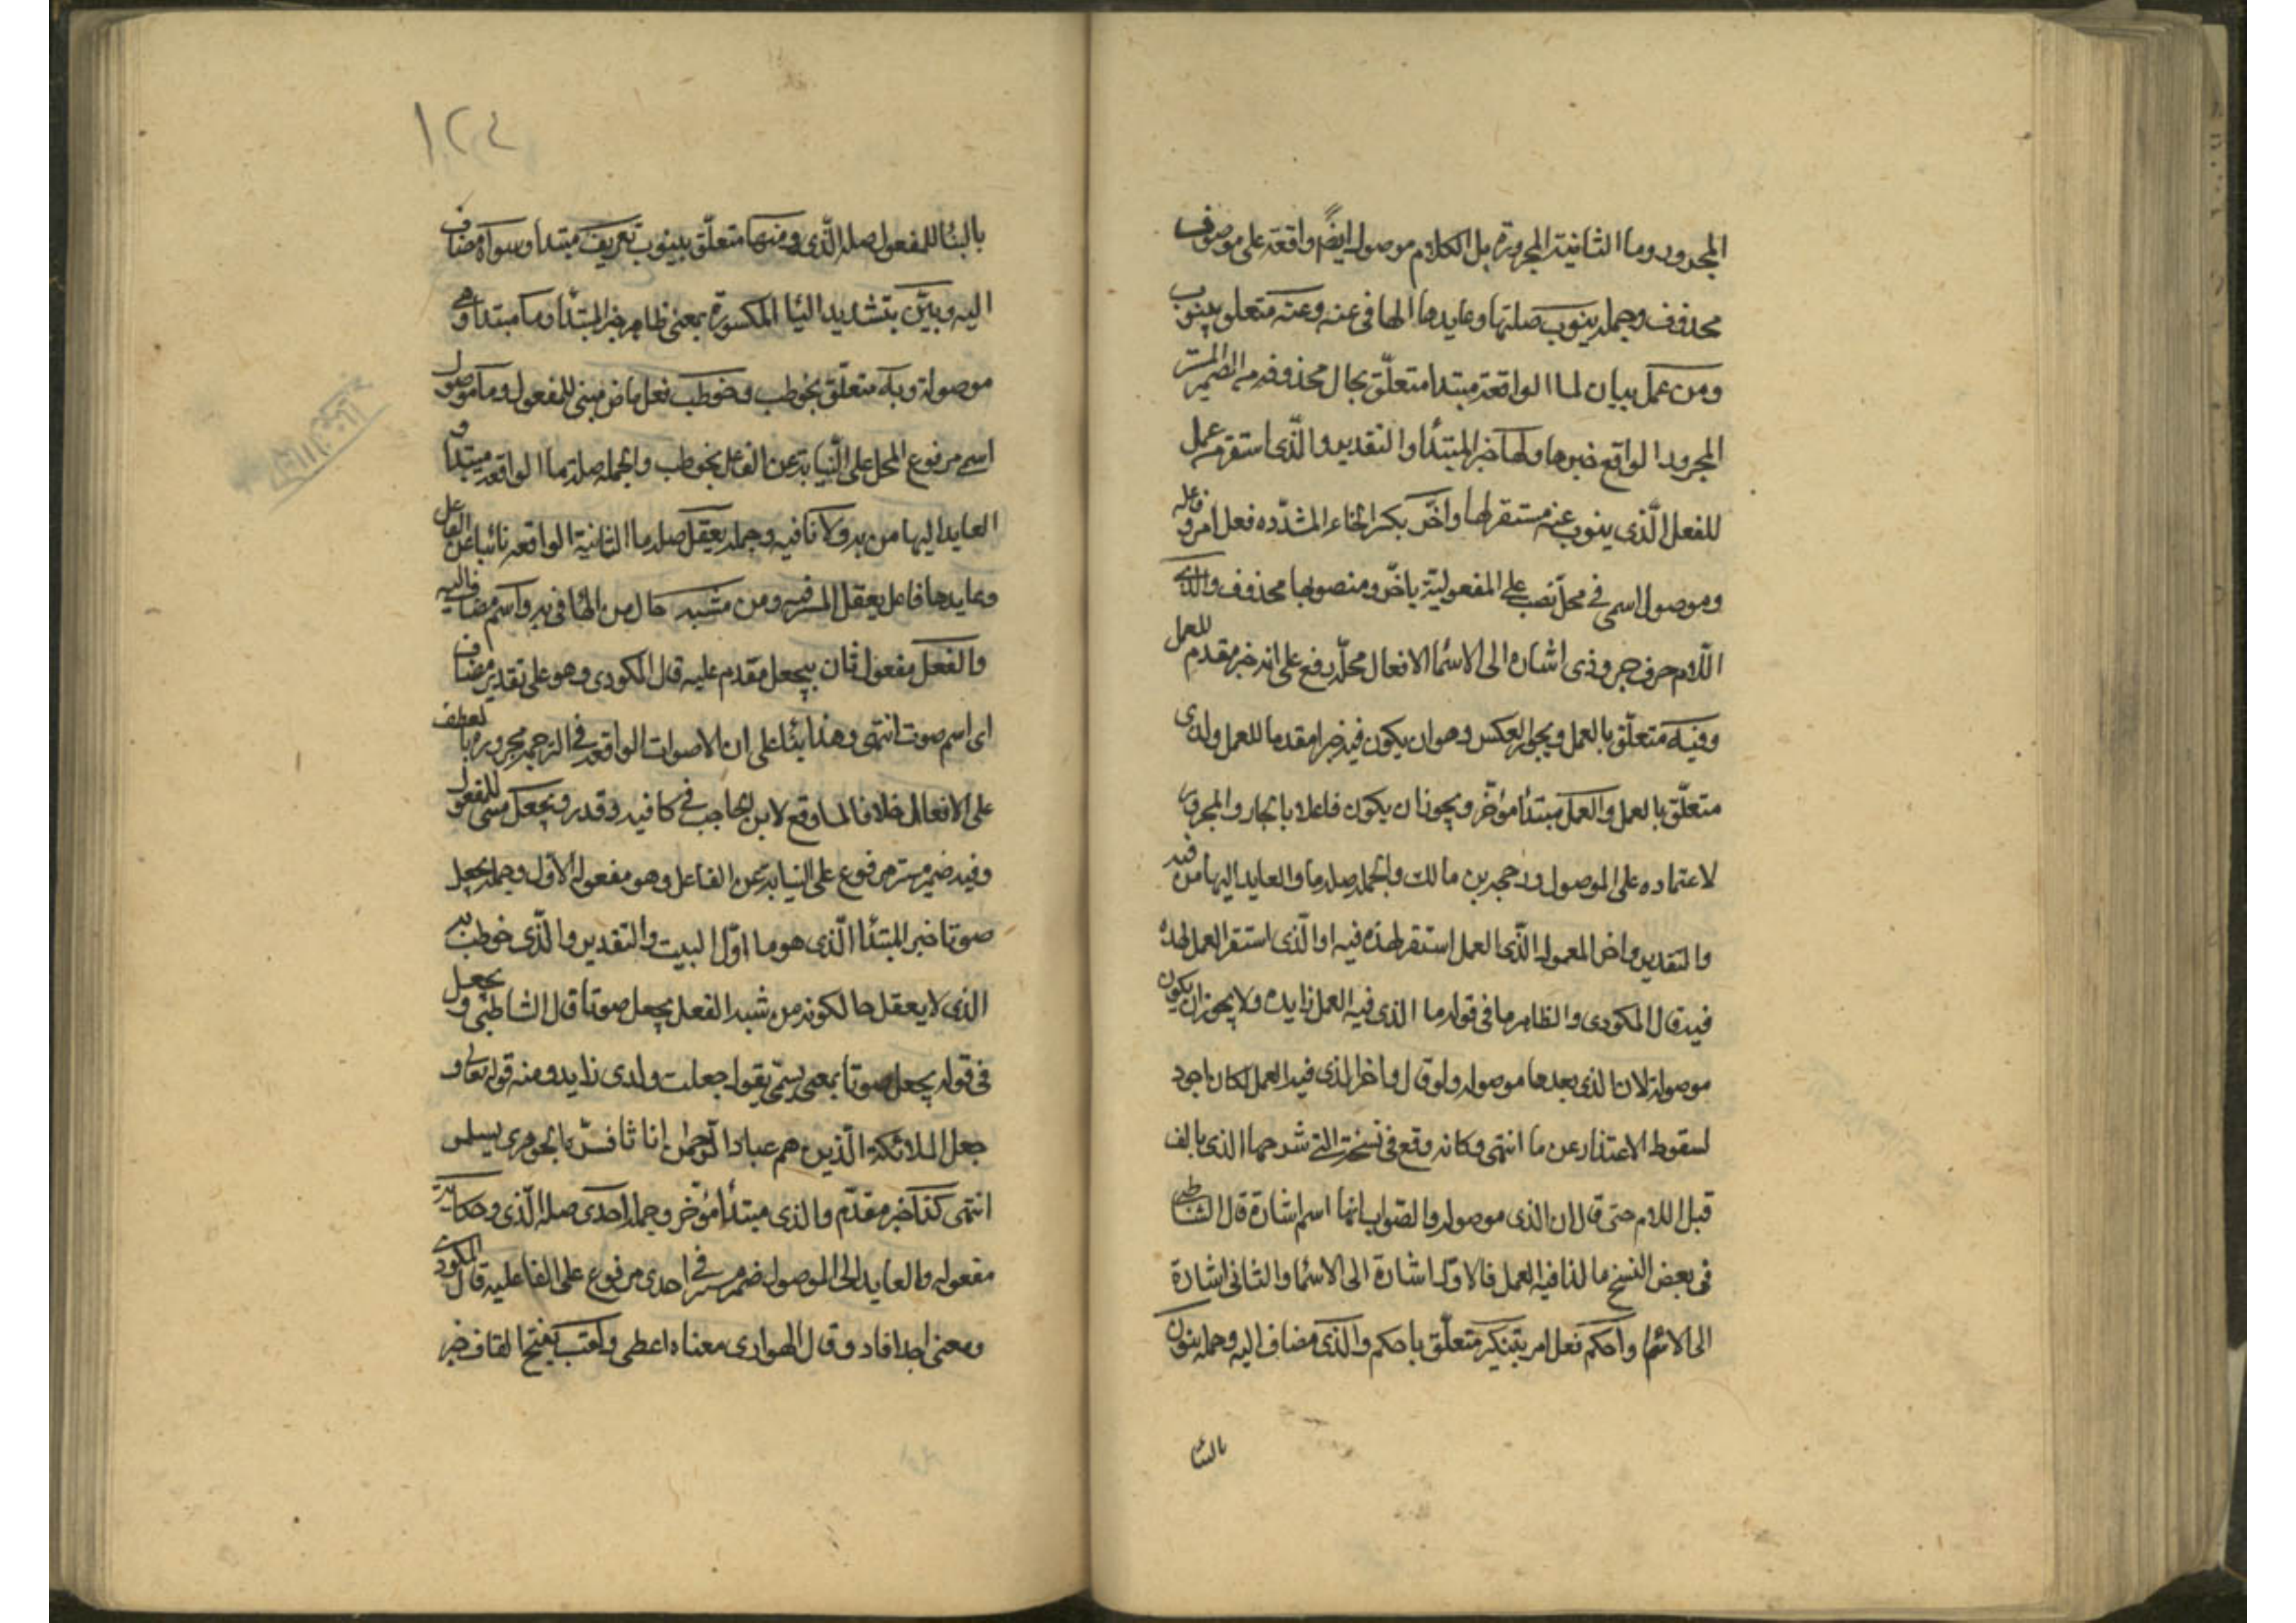 المجرور وما الثانية المجرورة بل الكلام موصول ايضًا واقعة على موصوف
محذوف وجملة ينوب صلتها وعايدها الها في عنه وعنه متعلق بينوب
ومن عمل بيان لما الواقعة مبتدا متعلّق بحال محذوفه من الضمير المستتر
المجرور الواقع خبرها ولها خبر المبتدأ والتقدير والّذى استقر من عمل
للفعل الّذى ينوب عنه مستقر لها واخّر بكسر الخاء المشدّده فعل امر وفاعله
وموصول اسمى في محلّ نصب على المفعوليّة باخّر ومنصوبها محذوف والذي
اللّام حرف جر وذى اشاره الى الاسما الافعال محلّه رفع على انه خبر مقدم للعمل
وفيه متعلّق بالعمل ويجوز العكس وهو ان يكون فيه خبرا مقدما للعمل ولذى
متعلّق بالعمل والعمل مبتدأ مؤخّر ويجوز ان يكون فاعلا بالجار والمجرور
لاعتماده على الموصول ورجحه بن مالك والجملة صلة ما والعايد اليها من فيه
والتقدير واخر المعمول الّذى العمل استقر لهذه فيه او الّذى استقر العمل لهذه
فيه قال المكودى والظاهر ما في قوله ما الذى فيه العمل زايده ولا يجوز ان يكون
موصولة لان الذى بعدها موصوله ولو قال واخر الذى فيه العمل لكان اجود
لسقوط الاعتذار عن ما انتهى وكانه وقع في نسخته التي شرحها الذى بالف
قبل اللام حتى قال ان الذى موصوله والصواب انها اسم اشارة قال الشاطبي
في بعض النسخ ما لذا فيه العمل فالاول اشارة الى الاسما والثانى اشارة
الى الاسما واحكم فعل امر بتنكير متعلّق باحكم والذى مضاف اليه وجملة ينون
بالبنا
١٢٤
بالبنا للمفعول صلة الّذى ومنها متعلّق بينون تعريف مبتدا وسواه مضاف
اليه وبيّن بتشديد اليا المكسورة بمعنى ظاهر خبر المبتدأ وما مبتدا وهي
موصولة وبه متعلّق بخوطب وخوطب فعل ماض مبنى للمفعول وما موصول
اسمى مرفوع المحل على النّيابة عن الفاعل بخوطب والجملة صلة ما الواقعه مبتدا و
العايد اليها من به ولا نافيه وجملة يعقل صلة ما الثانية الواقعه نائبا عن الفاعل
وعايدها فاعل يعقل المستتر فيه ومن مشبه حال من الها في به واسم مضاف اليه
والفعل مفعول ثان بيجعل مقدم عليه قال المكودى وهو على تقدير مضاف
اى اسم صوت انتهى وهذا بنا على ان الاصوات الواقعة في الترجمة مجروره بالعطف
على الافعال خلافا لما وقع لابن الحاجب في كافيه وقدره ويجعل مبنى للمفعول
وفيه ضمير مستتر مرفوع على النيابة عن الفاعل وهو مفعوله الاول وجملة يجعل
صوتا خبر المبتدأ الّذى هو ما اوّل البيت والتقدير والّذى خوطب به
الذى لا يعقل حالكونه من شبه الفعل يجعل صوتا قال الشاطبي ويجعل
في قوله يجعل صوتا بمعنى يسمّى يقول جعلت ولدى زايد ومنه قوله تعالى و
جعل الملائكة الّذين هم عباد الرّحمن اناثا فسّر بالجوهرى
انتهى كذا خبر مقدّم والذى مبتدأ مؤخّر وجملة اجدى صلة الّذى وحكاية
مفعوله والعايد الى الموصول ضمير مستتر في اجدى مرفوع على الفاعلية قال المكودي
ومعنى اجدا افاد وقال الهوارى معناه اعطى وكقب بفتح القاف خبر